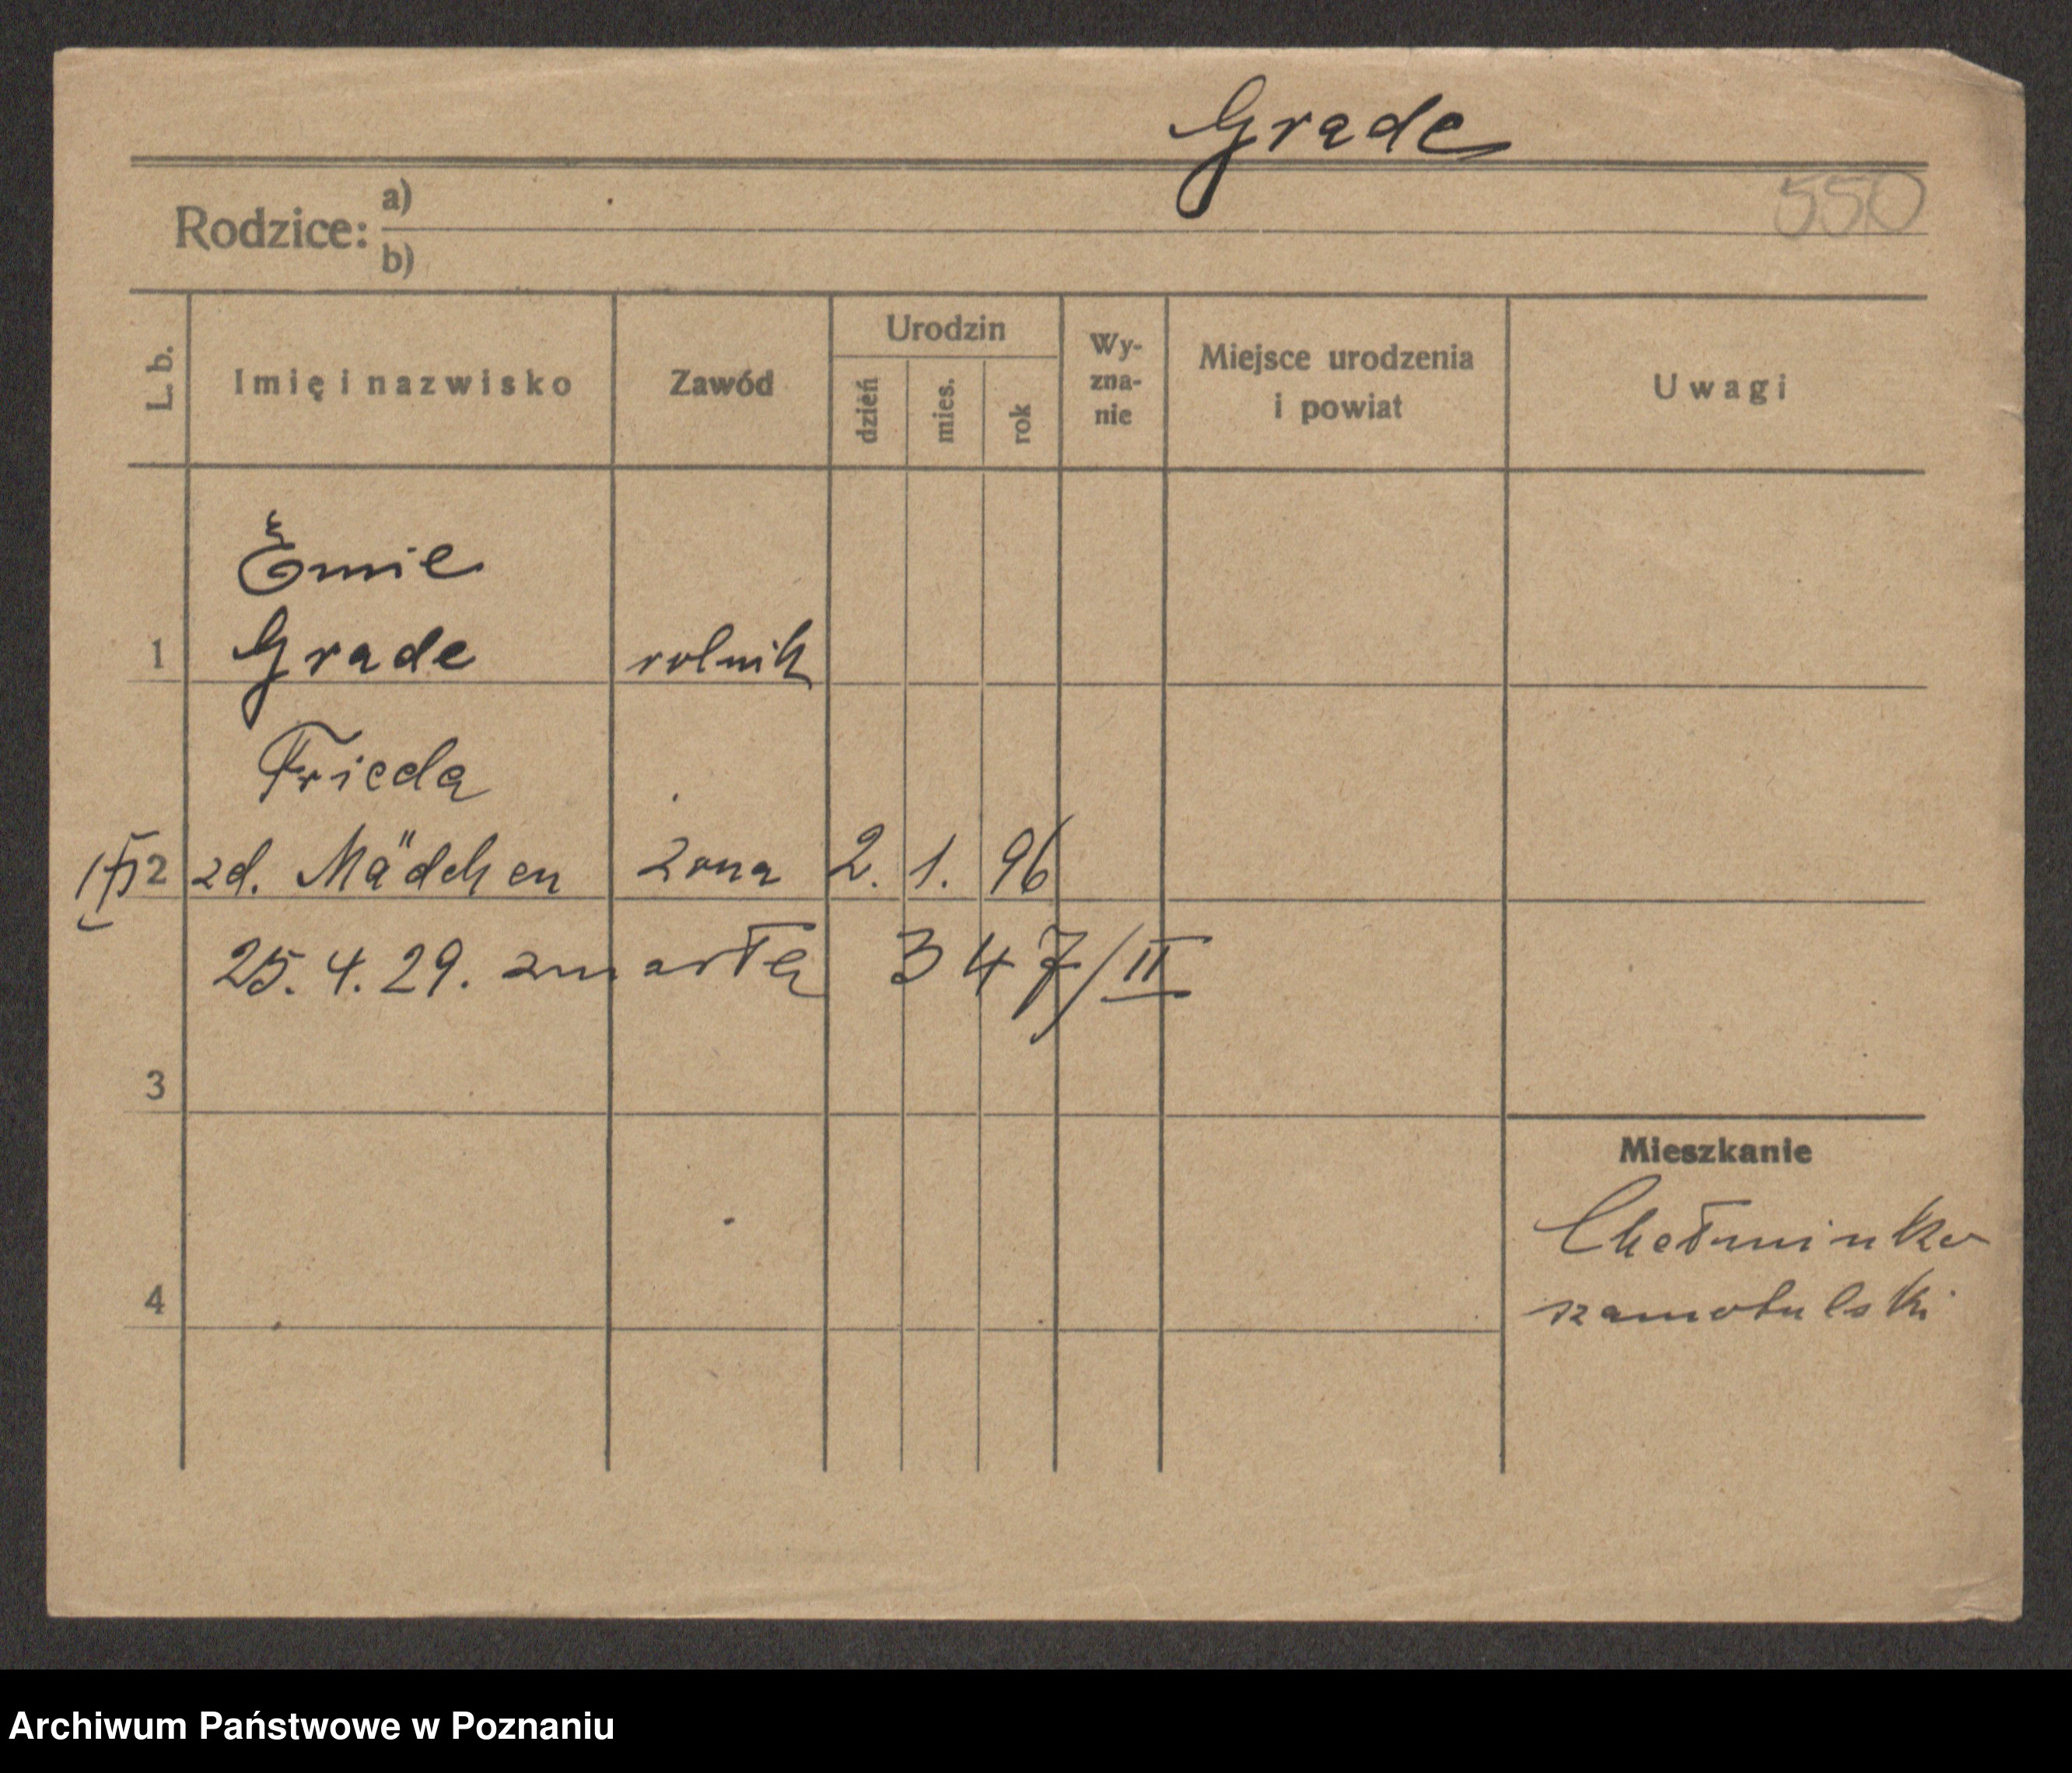 Grade
550
Rodzice: a)
b)
L. b.
Imię i nazwisko
Zawód
Urodzin
dzień
mies.
rok
Wy-
zna-
nie
Miejsce urodzenia
i powiat
Uwagi
Emil
1 Grade rolnik
Frieda
2 zd. Mädchen żona 2. 1. 96
25. 4. 29. zmarła 347/II
3
Mieszkanie
Chełminko
szamotulski
4
Archiwum Państwowe w Poznaniu